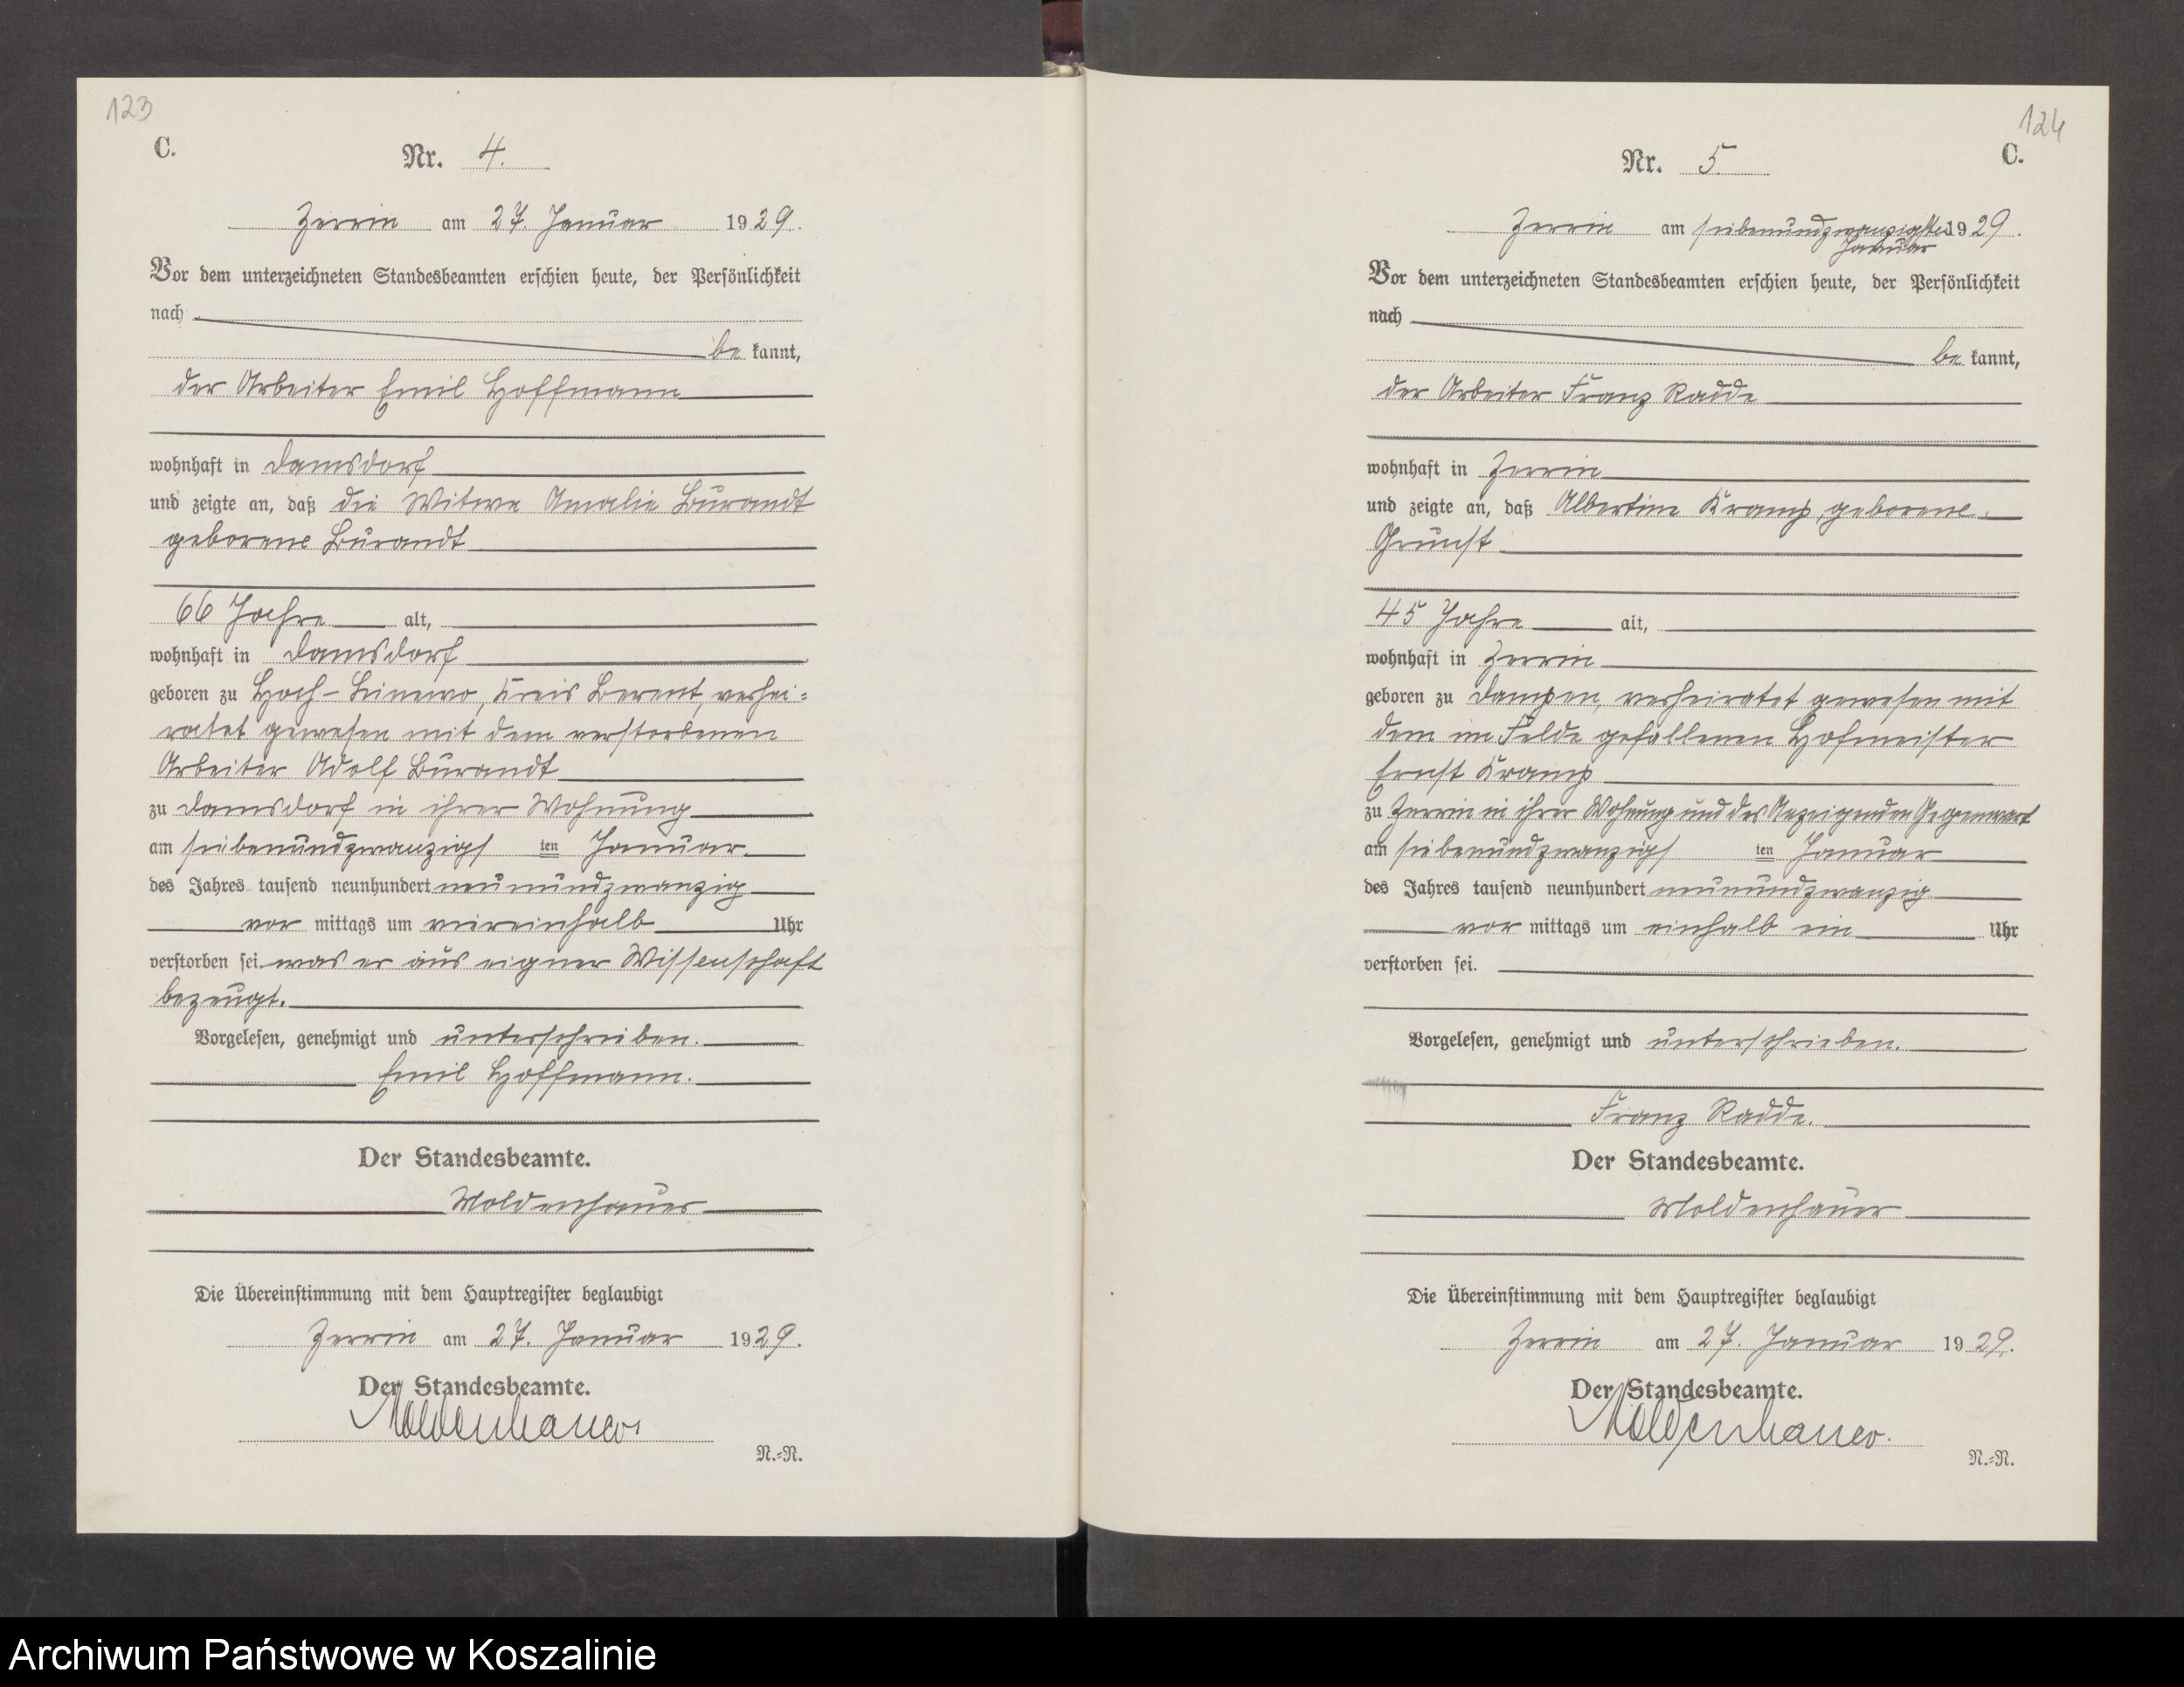 123
C.
Nr. 4.
Zerrin am 27. Januar 1929.
Vor dem unterzeichneten Standesbeamten erschien heute, der Persönlichkeit
nach
be kannt,
der Arbeiter Emil Hoffmann
wohnhaft in Damsdorf
und zeigte an, daß die Witwe Amalie Burandt
geborene Burandt
66 Jahre alt,
wohnhaft in Damsdorf
geboren zu Hoch- Kreis Berent, verhei-
ratet gewesen mit dem verstorbenen
Arbeiter Adolf Burandt
zu Damsdorf in ihrer Wohnung
am siebenundzwanzigs ten Januar
des Jahres tausend neunhundert neunundzwanzig
vor mittags um viereinhalb Uhr
verstorben sei was er aus eigner Wissenschaft
bezeugt.
Vorgelesen, genehmigt und unterschrieben.
Emil Hoffmann.
Der Standesbeamte.
Moldenhauer
Die Übereinstimmung mit dem Hauptregister beglaubigt
Zerrin am 27. Januar 1929.
Der Standesbeamte.
Moldenhauer
N.=N.
124
C.
Nr. 5.
Zerrin am siebenundzwanzigsten 1929.
Januar
Vor dem unterzeichneten Standesbeamten erschien heute, der Persönlichkeit
nach
be kannt,
der Arbeiter Franz Radde
wohnhaft in Zerrin
und zeigte an, daß Albertine Kramp, geborene
Grunst
45 Jahre alt,
wohnhaft in Zerrin
geboren zu Dampen, verheiratet gewesen mit
dem im Felde gefallenen Hofmeister
Ernst Kramp
zu Zerrin in ihrer Wohnung und des Anzeigenden Gegenwart
am siebenundzwanzigs ten Januar
des Jahres tausend neunhundert neunundzwanzig
vor mittags um einhalb ein Uhr
verstorben sei.
Vorgelesen, genehmigt und unterschrieben.
Franz Radde.
Der Standesbeamte.
Moldenhauer
Die Übereinstimmung mit dem Hauptregister beglaubigt
Zerrin am 27. Januar 1929.
Der Standesbeamte.
Moldenhauer.
N.=N.
Archiwum Państwowe w Koszalinie